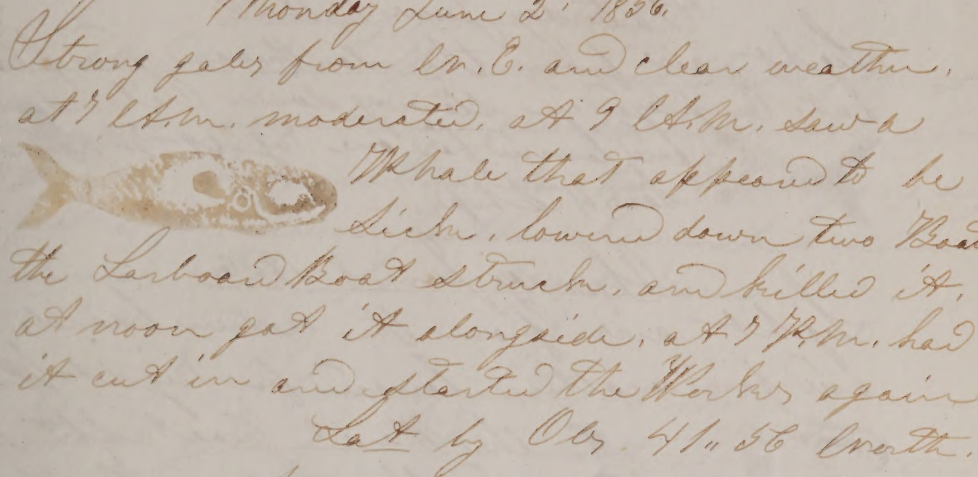 Monday June 2d 1856.
Strong gales from N. E. and clear weather.
at 7 A.M. moderated. at 9 A.M. saw a
Whale that appeared to be
sick, lowered down two Boat
the Larboard Boat struck, and killed it.
at noon got it alongside, at 7 P.M. had
it cut in and started the Works again
Lat by Obs. 41,, 56 North.